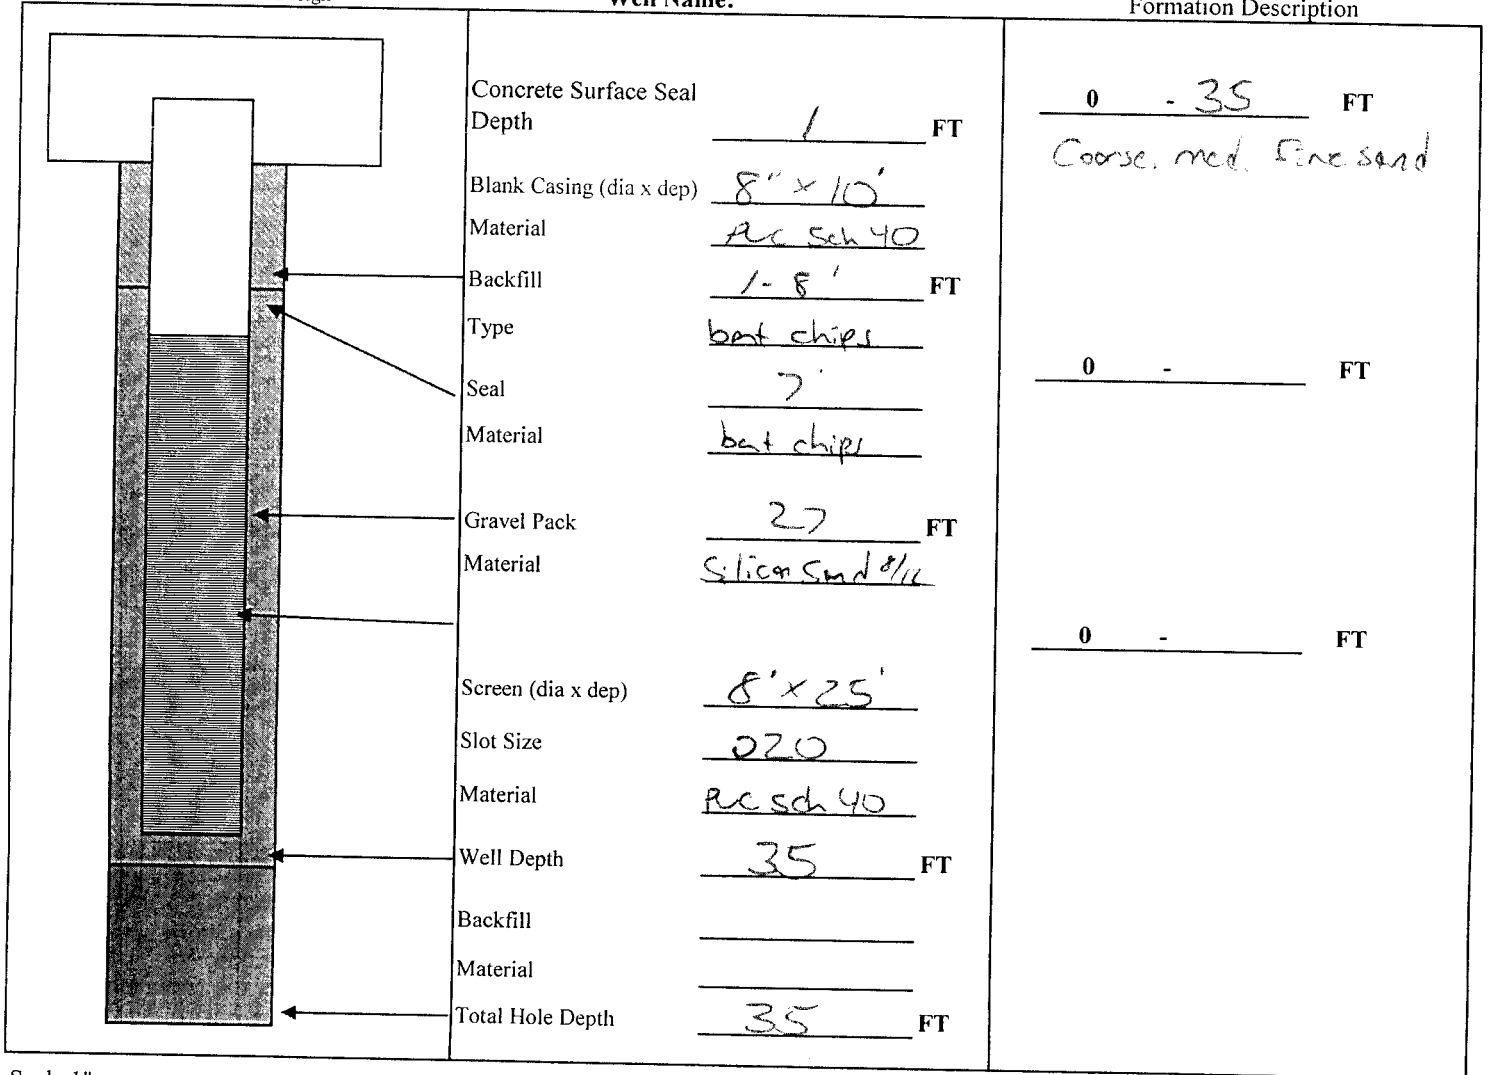 Well Name:
Formation Description
Concrete Surface Seal
Depth 1 FT
Blank Casing (dia x dep) 8" x 10'
Material PVC Sch 40
Backfill 1-8' FT
Type bent chips
Seal 7'
Material bent chips
Gravel Pack 27 FT
Material Silica Sand 8/12
Screen (dia x dep) 8' x 25'
Slot Size 020
Material PVC sch 40
Well Depth 35 FT
Backfill
Material
Total Hole Depth 35 FT
0 - 35 FT
Coarse. med. fine sand
0 - FT
0 - FT